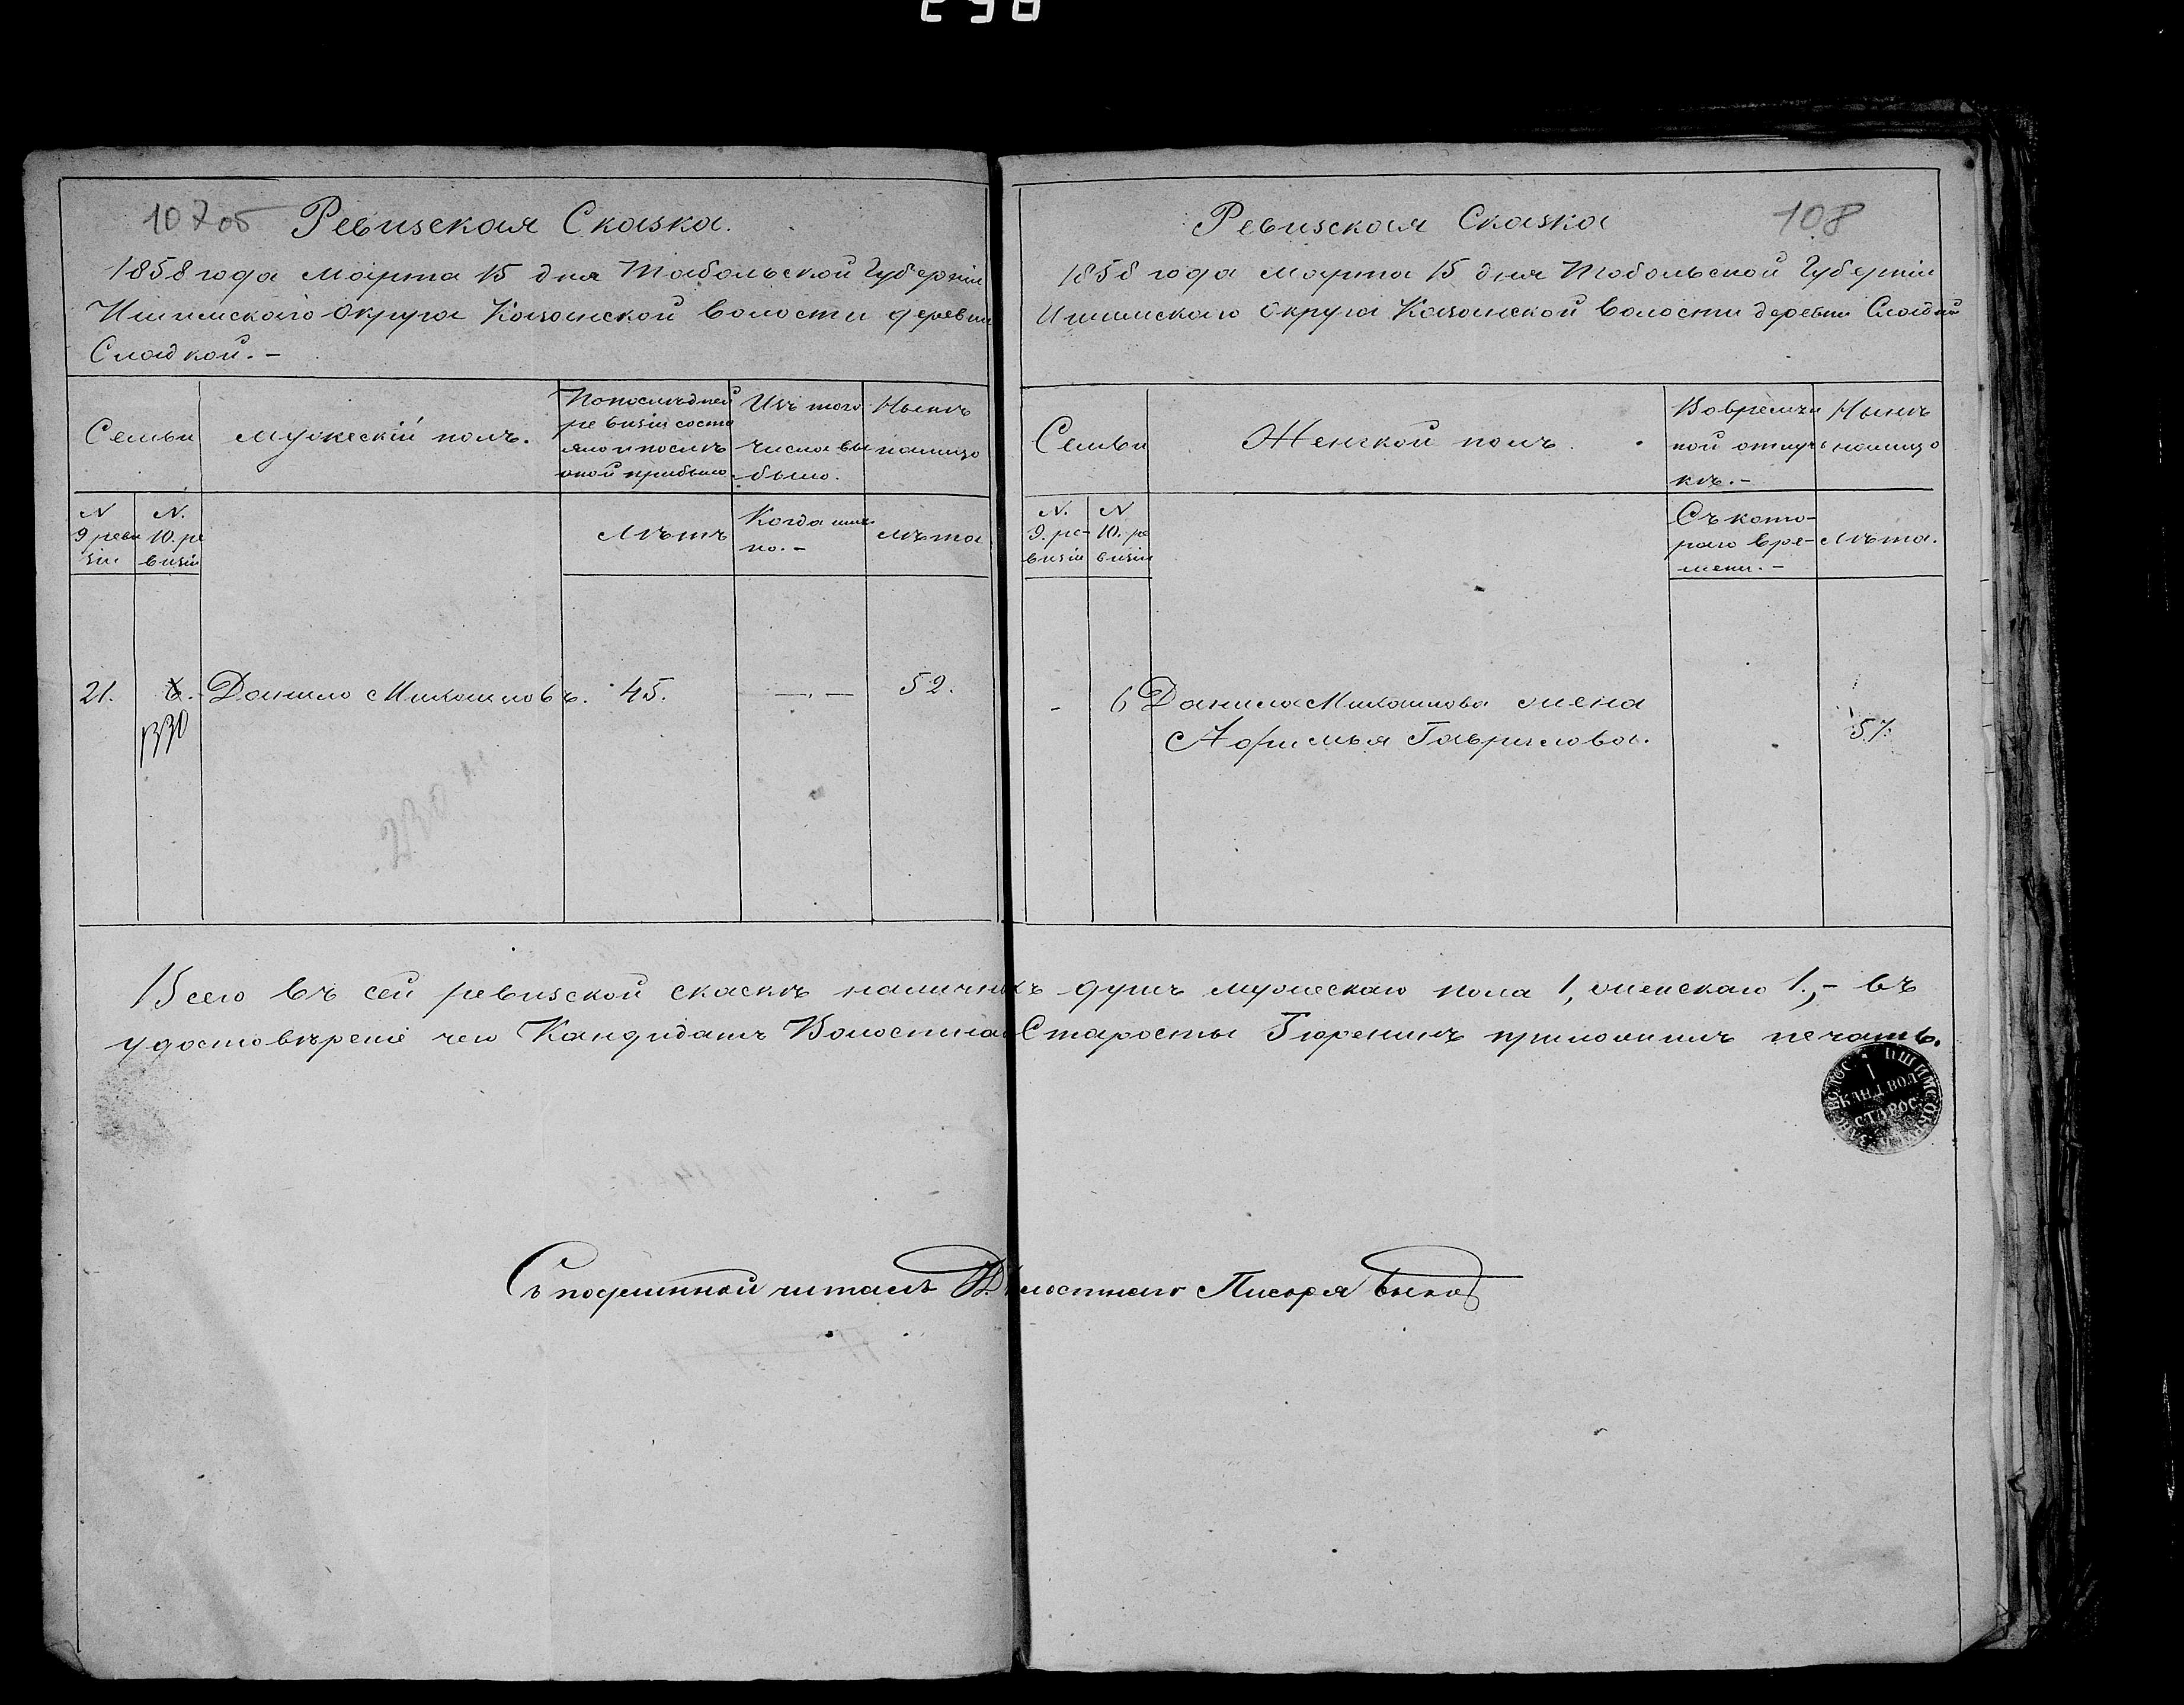 298
107об Ревизская Сказка.
1858 года Марта 15 дня Тобольской Губерніи
Ишимскаго Округа Казанской Волости деревни
Сладкой.-
Семьи
Мужескій полъ.
По последней
ревизіи состо
яло и после
оной прибыло
Изъ того
числа вы
было.
Ныне
налицо
N
9 реви
зіи
N.
10. ре
визіи
Летъ
Когда имен
но.-
Лета
21. 6. Данило Михайловъ. 45. —.— 52.
1330
Ревизская Сказка 108
1858 года Марта 15 дня Тобольской Губерніи
Ишимскаго Округа Казанской Волости деревни Сладкой
Семьи
Женской полъ.
Во времен
ной отлуч
ке.-
Ныне
налицо
N.
9. ре-
визіи
N
10. ре
визіи
Съ кото-
раго вре-
мени.-
Лета.
- 6 Данила Михайлова жена
Афимья Гаврилова. 57.
Всего въ сей ревизской скаске наличныхъ душъ мужескаго пола 1, женскаго 1.,- въ
удостовереніе чего Кандидатъ Волостнаго Старосты Гюренинъ приложилъ печать.
1
КАНД.ВОЛ
СТАРОС.
Съ подлинной читалъ Волостнаго Писаря